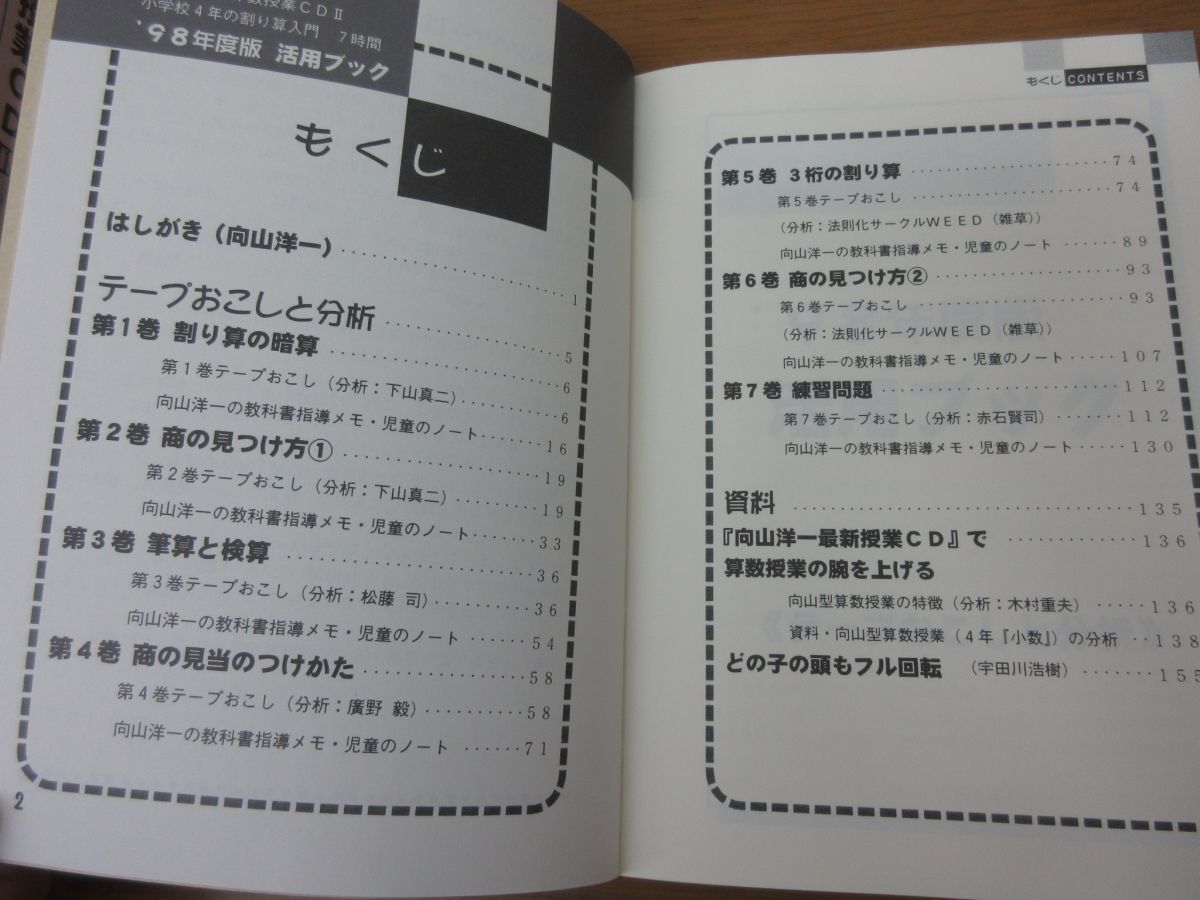 数授業CDⅡ
小学校4年の割り算入門 7時間
'98年度版 活用ブック
もくじ
はしがき（向山洋一）……………………1
テープおこしと分析……………………5
第1巻 割り算の暗算……………………6
第1巻テープおこし（分析：下山真二）……………………6
向山洋一の教科書指導メモ・児童のノート……………………16
第2巻 商の見つけ方①……………………19
第2巻テープおこし（分析：下山真二）……………………19
向山洋一の教科書指導メモ・児童のノート……………………33
第3巻 筆算と検算……………………36
第3巻テープおこし（分析：松藤 司）……………………36
向山洋一の教科書指導メモ・児童のノート……………………54
第4巻 商の見当のつけかた……………………58
第4巻テープおこし（分析：廣野 毅）……………………58
向山洋一の教科書指導メモ・児童のノート……………………71
2
もくじ CONTENTS
第5巻 3桁の割り算……………………74
第5巻テープおこし……………………74
（分析：法則化サークルWEED（雑草））
向山洋一の教科書指導メモ・児童のノート……………………89
第6巻 商の見つけ方②……………………93
第6巻テープおこし……………………93
（分析：法則化サークルWEED（雑草））
向山洋一の教科書指導メモ・児童のノート……………………107
第7巻 練習問題……………………112
第7巻テープおこし（分析：赤石賢司）……………………112
向山洋一の教科書指導メモ・児童のノート……………………130
資料……………………135
『向山洋一最新授業CD』で……………………136
算数授業の腕を上げる
向山型算数授業の特徴（分析：木村重夫）……………………136
資料・向山型算数授業（4年『小数』）の分析……………………138
どの子の頭もフル回転 （宇田川浩樹）……………………155